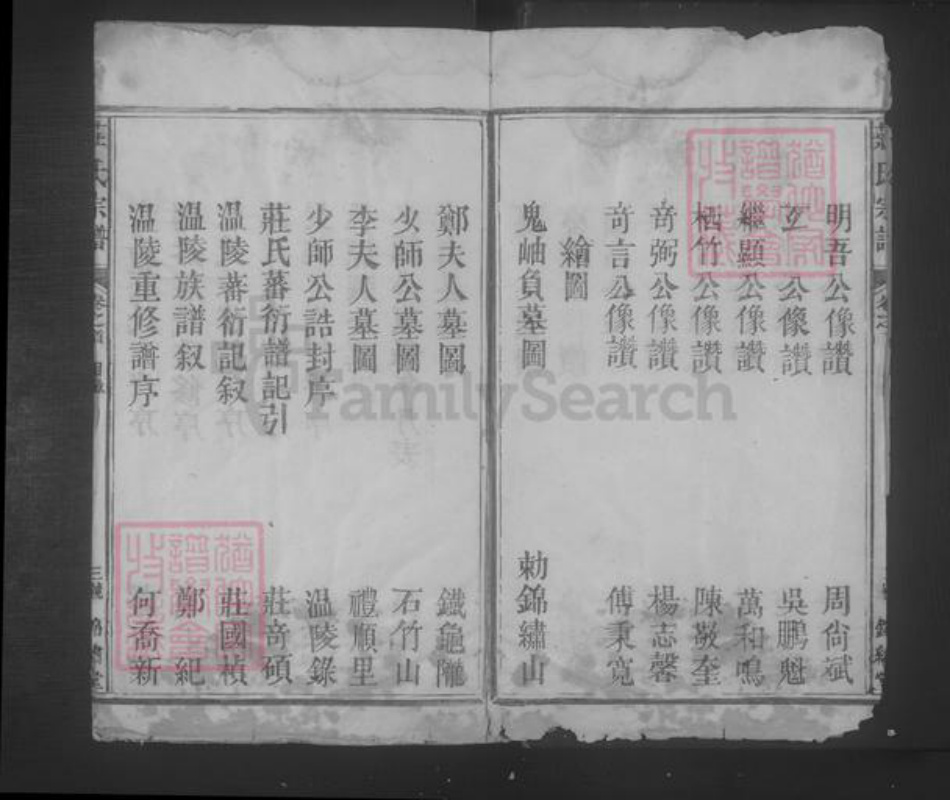 明吾公像讚 周尙斌
玄 公像讚 吳鵬魁
繼顯公像讚 萬和鳴
栖竹公像讚 陳敬奎
竒弼公像讚 楊志馨
竒言公像讚 傅秉寬
繪圖
鬼岫負墓圖 勅錦繡山
鄭夫人墓圖 鐵龜
少師公墓圖 石竹山
李夫人墓圖 禮順里
少師公誥封序 温陵錄
莊氏蕃衍譜記引 莊竒碩
温陵蕃衍記叙 莊國楨
温陵族譜叙 鄭紀
温陵重修譜序 何喬新
莊氏宗譜
FamilySearch